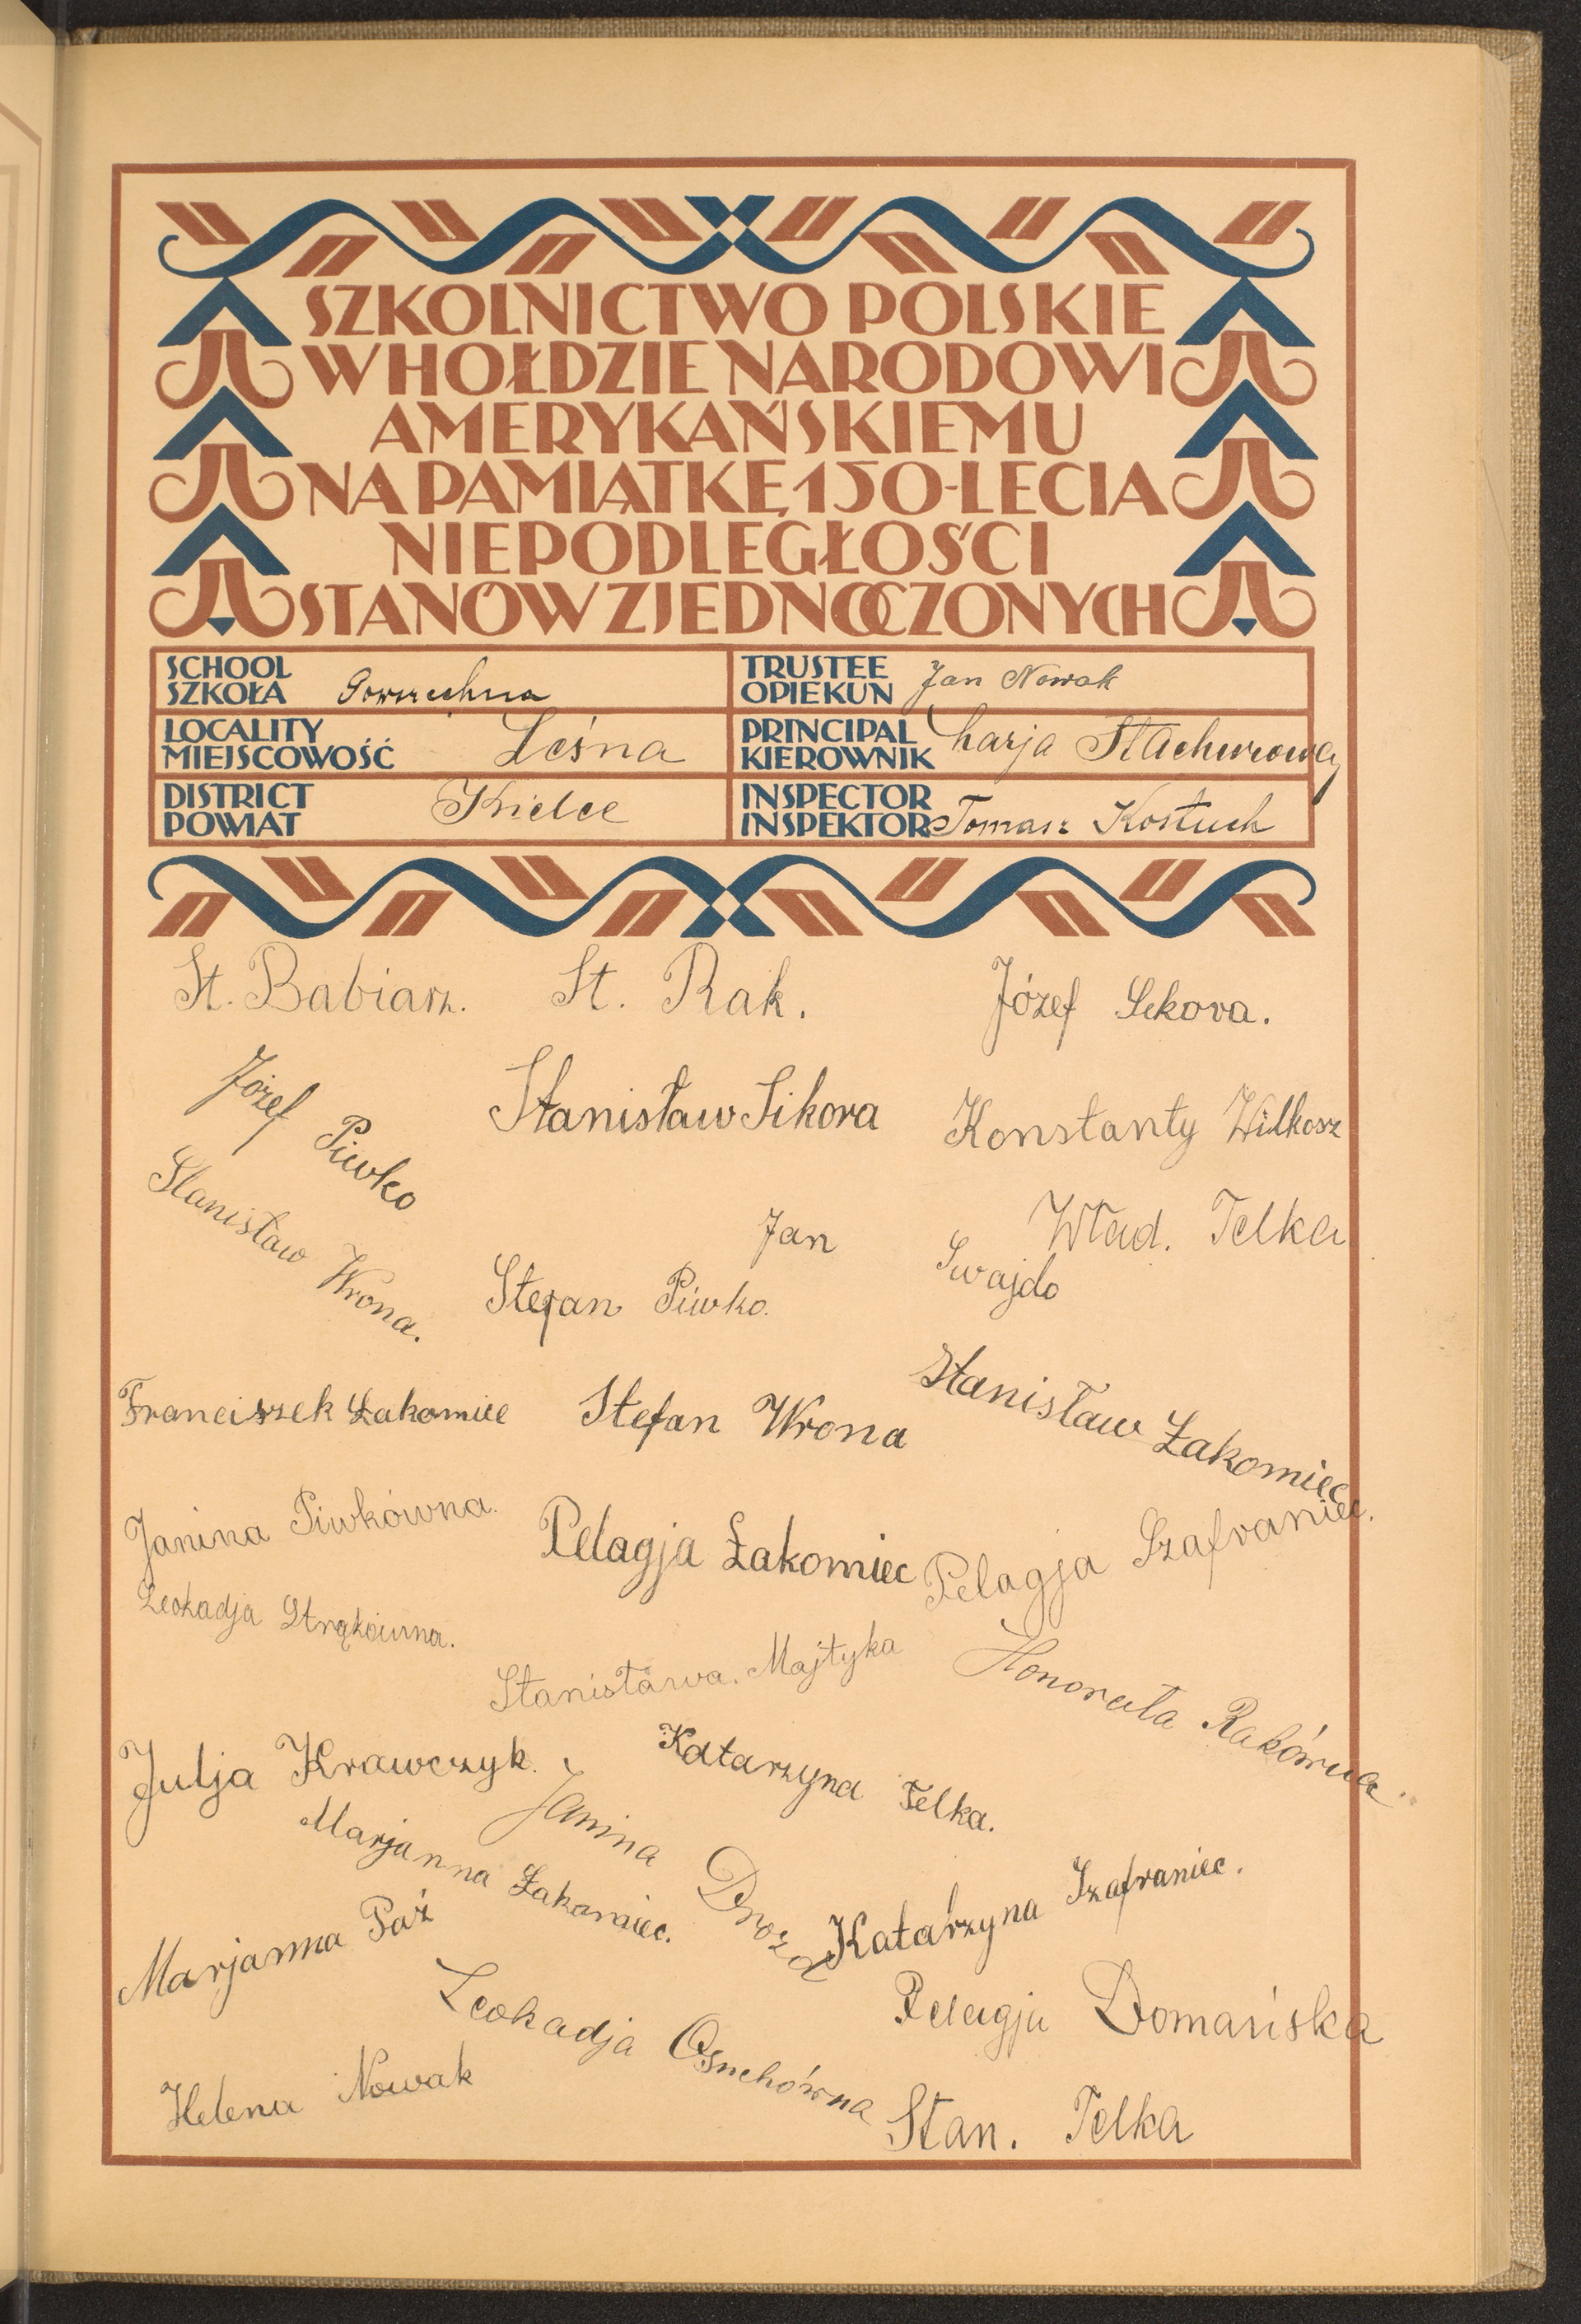 SZKOLNICTWO POLSKIE
W HOŁDZIE NARODOWI
AMERYKAŃSKIEMU
NA PAMIĄTKĘ 150-LECIA
NIEPODLEGŁOŚCI
STANÓW ZJEDNOCZONYCH
SCHOOL
SZKOŁA Powszechna
TRUSTEE
OPIEKUN Jan Nowak
LOCALITY
MIEJSCOWOŚĆ Leśna
PRINCIPAL
KIEROWNIK Marja Stachurowa
DISTRICT
POWIAT Kielce
INSPECTOR
INSPEKTOR Tomasz Kostuch
St. Babiarz. St. Rak. Józef Sekora.
Józef Piwko Stanisław Sikora Konstanty Wilkosz
Stanisław Wrona. Jan Swajdo Wład. Telka
Stefan Piwko.
Franciszek Łakomiec Stefan Wrona Stanisław Łakomiec
Janina Piwkówna. Pelagja Łakomiec Pelagja Szafraniec.
Leokadja Strąkówna.
Stanisława Majtyka Honorata Rakówna
Julja Krawczyk. Katarzyna Telka.
Janina Drozd
Marjanna Łakomiec.
Marjanna Paź Katarzyna Szafraniec.
Leokadja Osuchówna Pelagja Domańska
Helena Nowak Stan. Telka